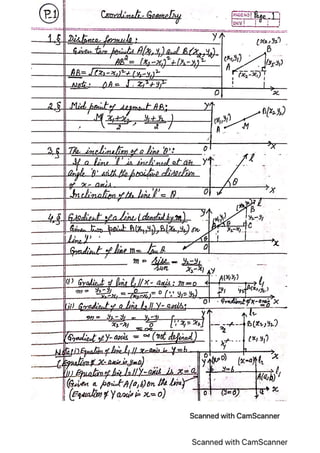 P.1 Coordinate-Geometry PAGE NO Page. 1
DATE
1.§ Distance formula:
Given two points A(x₁,y₁) and B(x₂,y₂)
AB² = (x₂-x₁)²+(y₂-y₁)²
AB = √(x₂-x₁)²+(y₂-y₁)²
Note: OA = √x₁²+y₁²
2.§ Mid point of segment AB:
M(x₁+x₂/2, y₁+y₂/2)
3.§ The inclination of a line 'θ':
If a line 'l' is inclined at an
angle 'θ' with the positive direction
of x-axis
Inclination of the line 'l' = θ
4.§ Gradient of a line (denoted by m)
Given two point A(x₁,y₁), B(x₂,y₂) on
line 'l'
Gradient of line m = tan θ
m = rise/run = y₂-y₁/x₂-x₁
(i) Gradient of line l₁ // x-axis: m=0
m = y₂-y₁/x₂-x₁ = 0/(x₂-x₁) = 0 (∵ y₁=y₂)
(ii) Gradient of line l₂ // y-axis:
m = y₂-y₁/x₂-x₁ = y₂-y₁/0 [∵ x₁=x₂]
= ∞
(Gradient of y-axis = ∞ (not defined)
Note: (i) Equation of line l₁ // x-axis is y=b
(Equation of x-axis is y=0)
(ii) Equation of line l₂ // y-axis is x=a
(Given a point A(a,b) on the line)
(Equation of y axis is x=0)
Scanned with CamScanner
Scanned with CamScanner